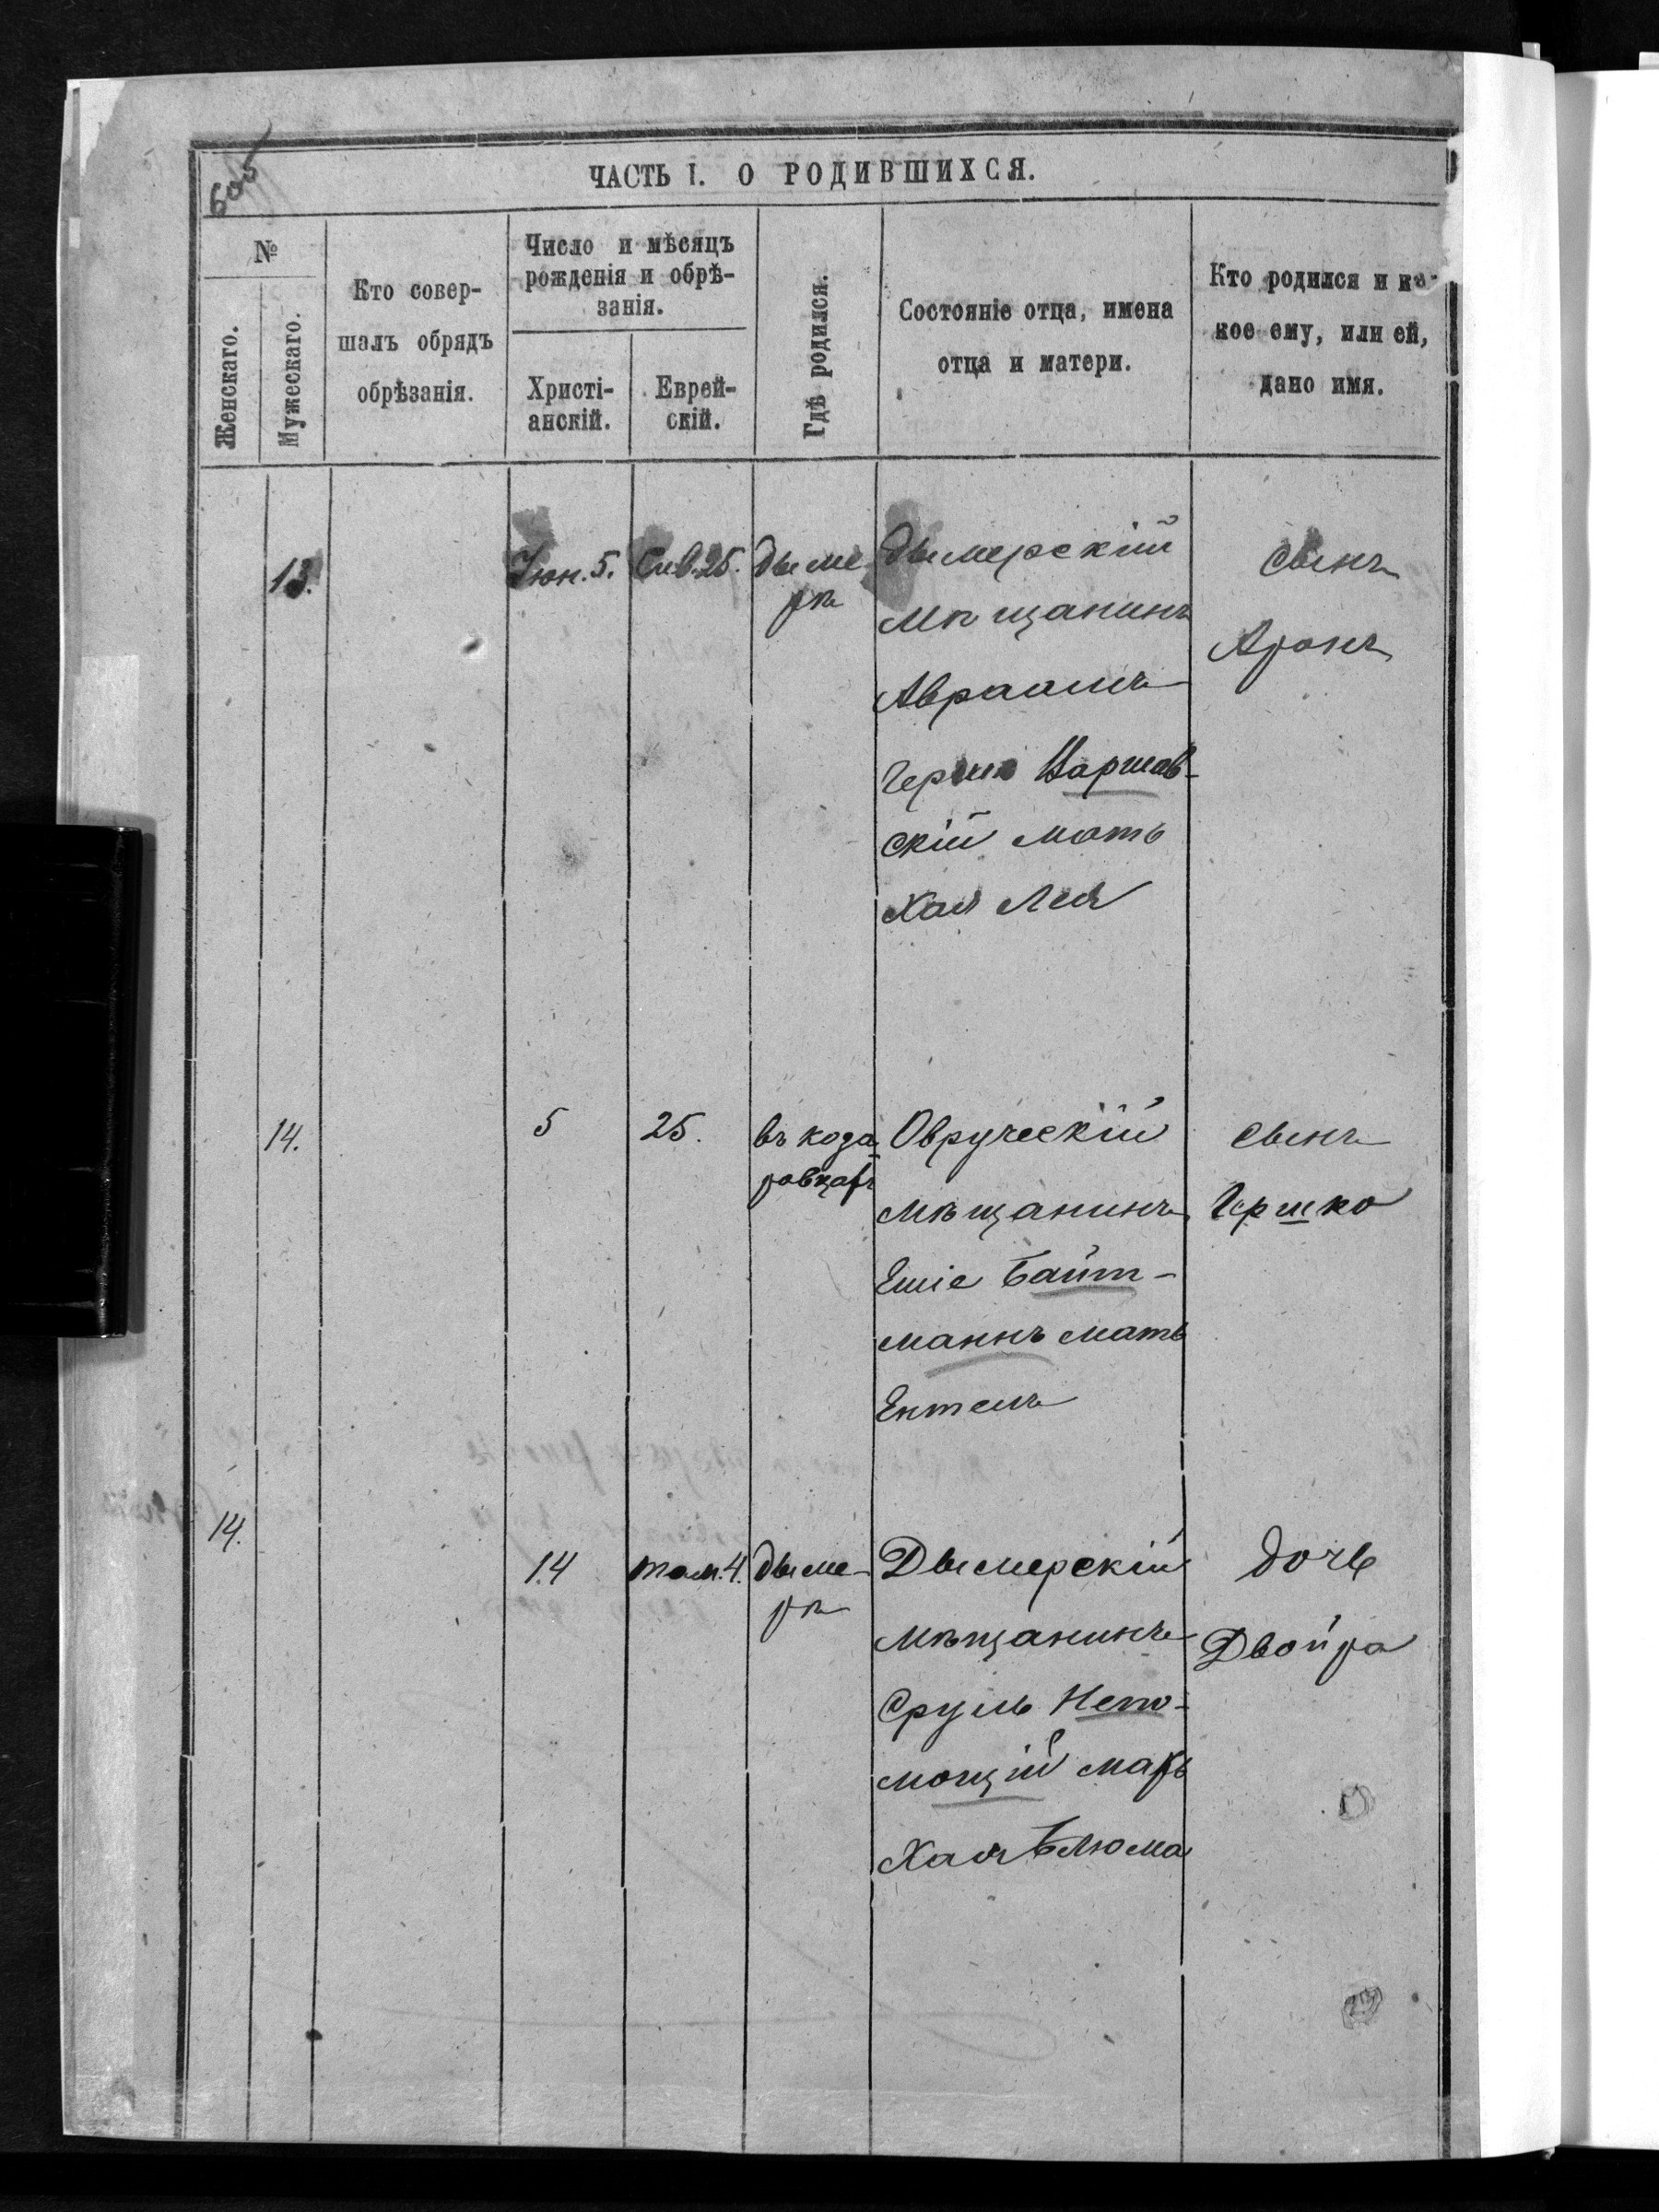 605
ЧАСТЬ I. О РОДИВШИХСЯ.
№
Женскаго.
Мужескаго.
Кто совер-
шалъ обрядъ
обрѣзанія.
Число и мѣсяцъ
рожденія и обрѣ-
занія.
Христі-
анскій.
Еврей-
скій.
Гдѣ родился.
Состояніе отца, имена
отца и матери.
Кто родился и ка-
кое ему, или ей,
дано имя.
13.
Іюн. 5.
Сив. 25.
дыме
ръ
дымерскій
мѣщанинъ
Авраамъ
Гершко Варшав-
скій мать
Хая Лея
сынъ
Аронъ
14.
5
25.
въ коза
ровцахъ
Овруческій
мѣщанинъ
Ешіе Байт-
манъ мать
Ентель
сынъ
Гершко
14.
14
там. 4.
дыме-
ръ
Дымерскій
мѣщанинъ
Сруль Непо-
мощій мать
Хая Блюма
дочь
Двойра